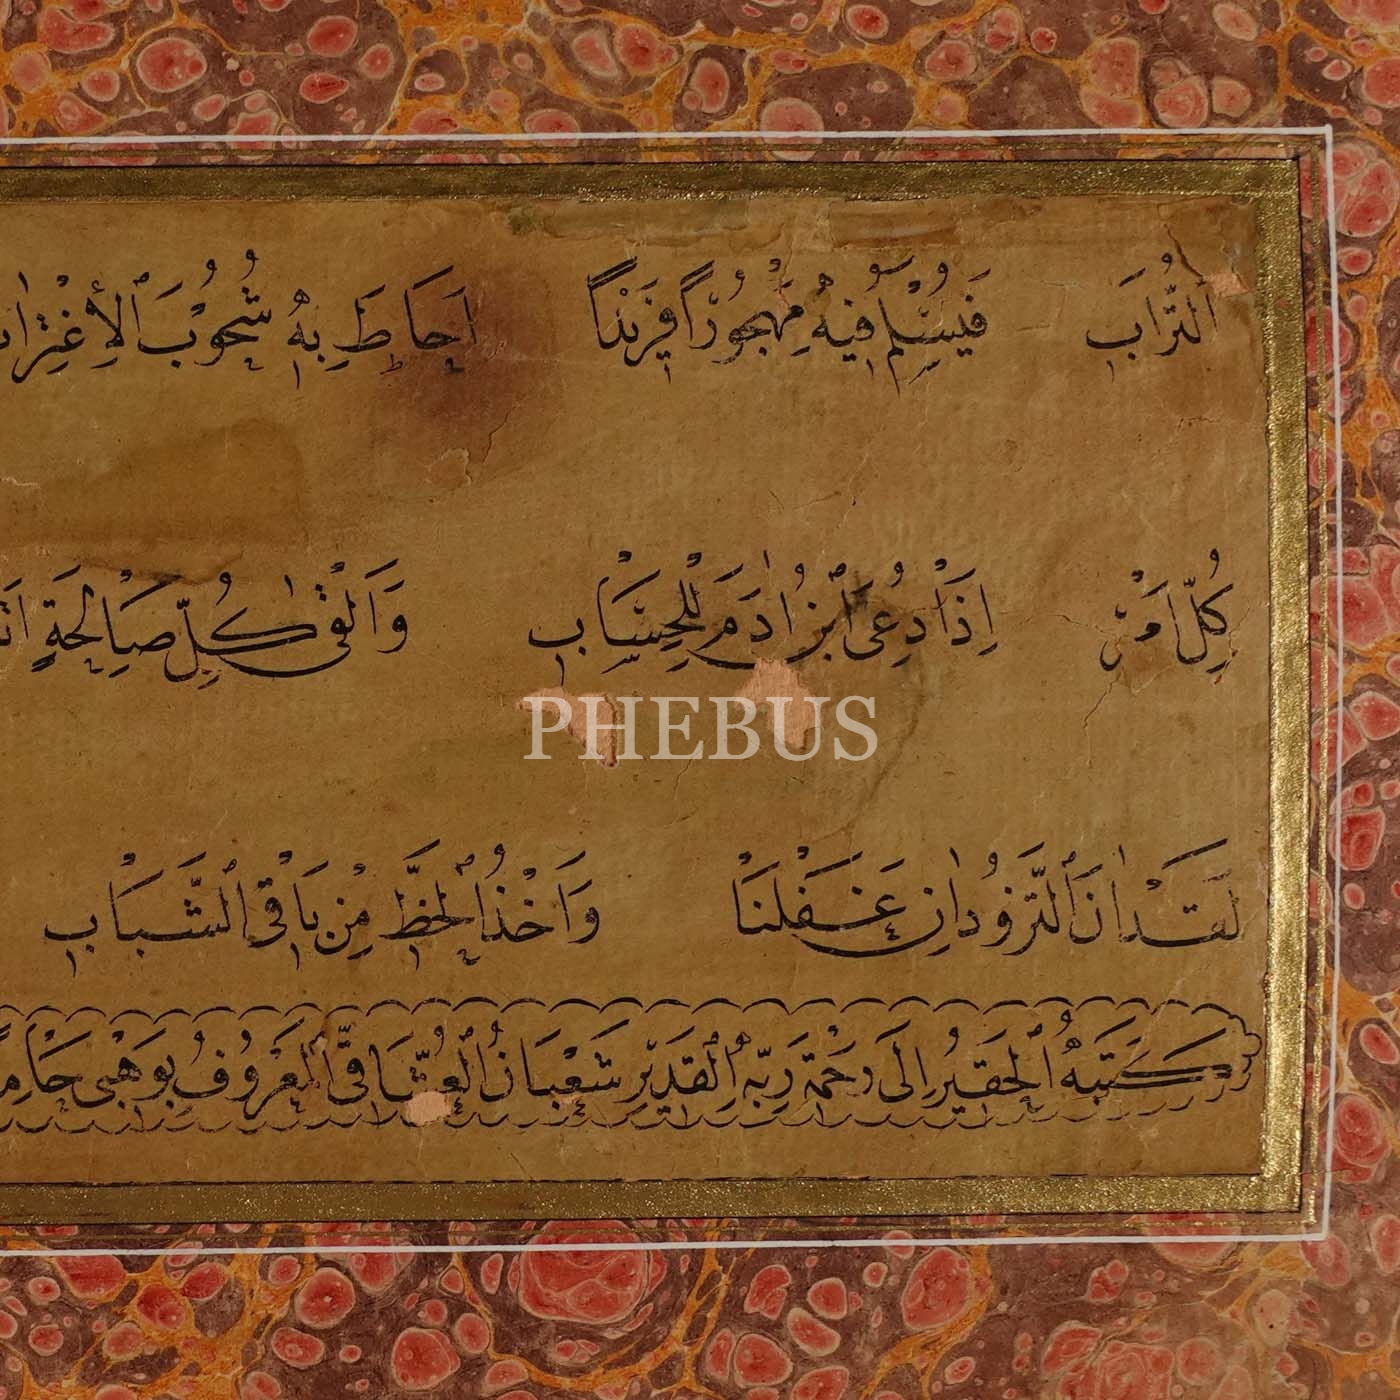 التُّرَابِ فَيُسْلَمُ فِيهِ مَهْجُورًا فَرِيْدًا اَحَاطَ بِهِ شُحُوْبُ الْاِغْتِرَابِ
كُلِّ اَمْرٍ اِذَا دُعِىَ ابْنُ اٰدَمَ لِلْحِسَابِ وَاَلْقٰى كُلَّ صَالِحَةٍ
PHEBUS
لَقَدْ اٰنَ التَّزَوُّدُ اِنْ عَقَلْنَا وَاَخْذُ الْحَظِّ مِنْ بَاقِى الشَّبَابِ
كَتَبَهُ الْحَقِيْرُ اِلٰى رَحْمَةِ رَبِّهِ الْقَدِيْرِ شَعْبَانُ الْعُشَّاقِىُّ الْمَعْرُوْفُ بِوَهْبِى